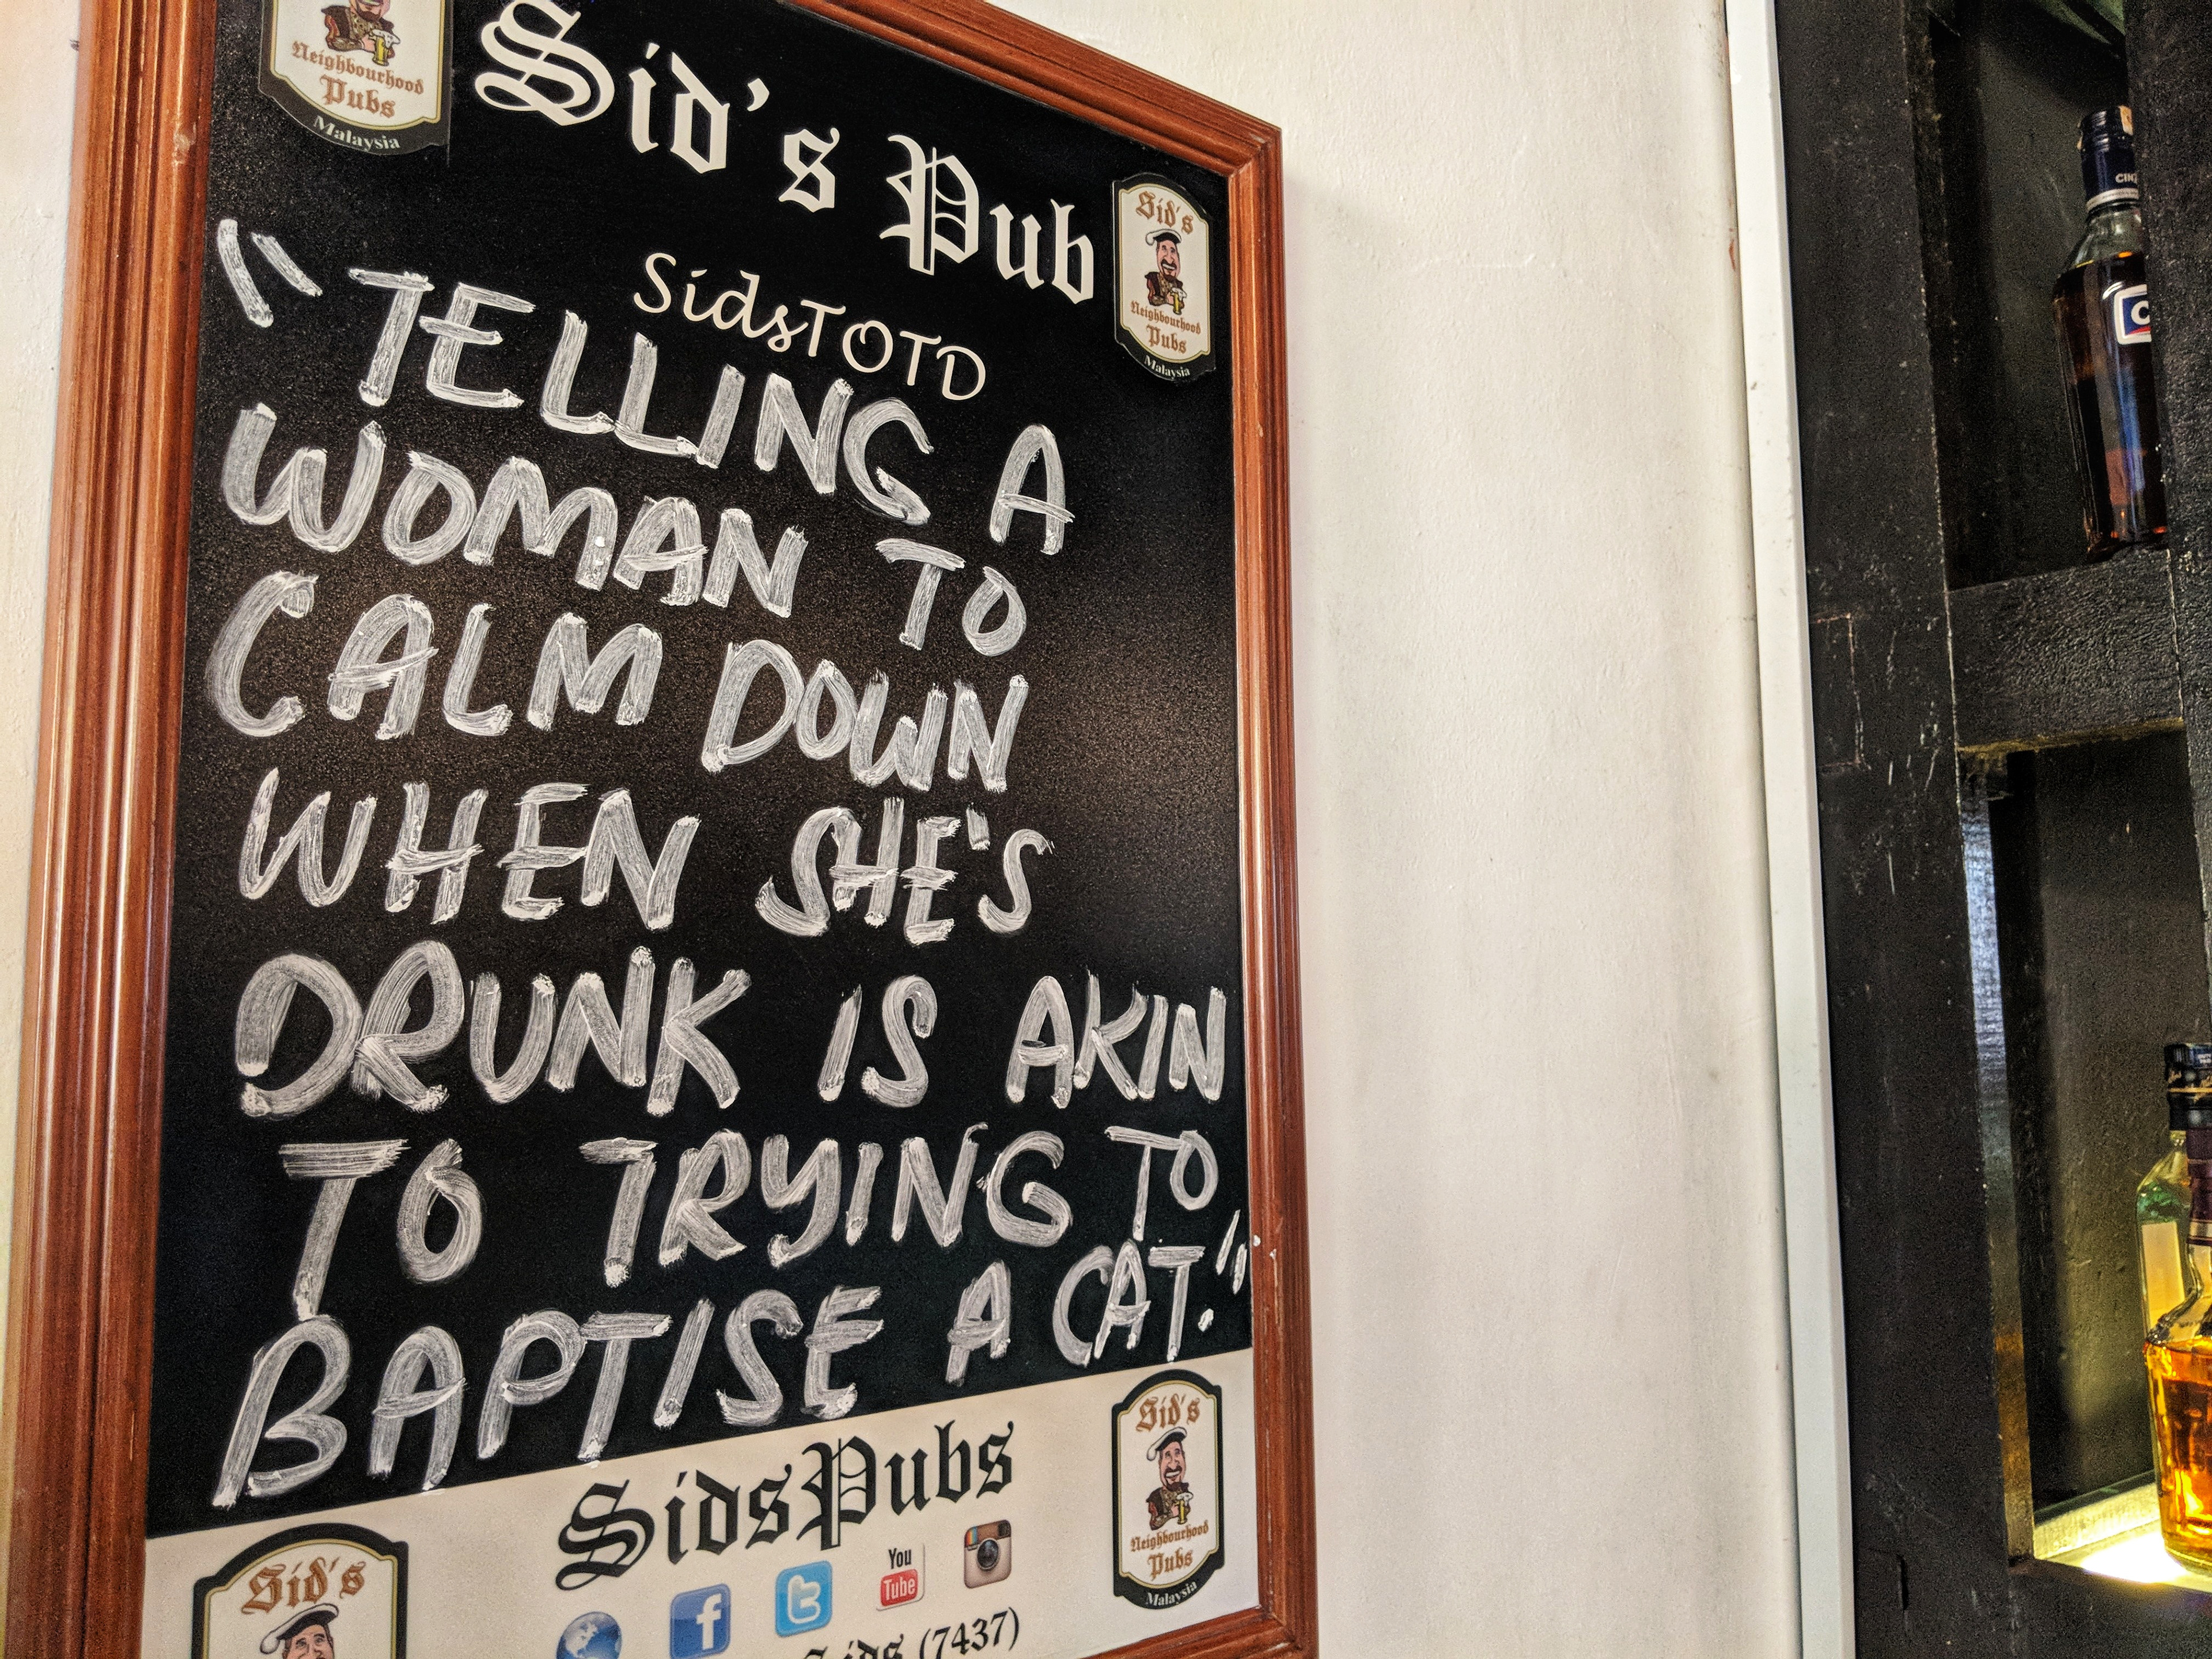 Neighbourhood
Pubs
Malaysia
Sid's Pub
Sid's
Neighbourhood
Pubs
Malaysia
SidsTOTD
"TELLING A
WOMAN TO
CALM DOWN
WHEN SHE'S
DRUNK IS AKIN
TO TRYING TO
BAPTISE A CAT."
SidsPubs
Sid's
Neighbourhood
Pubs
Malaysia
Sid's
f
t
You
Tube
Sids (7437)
CIN
C